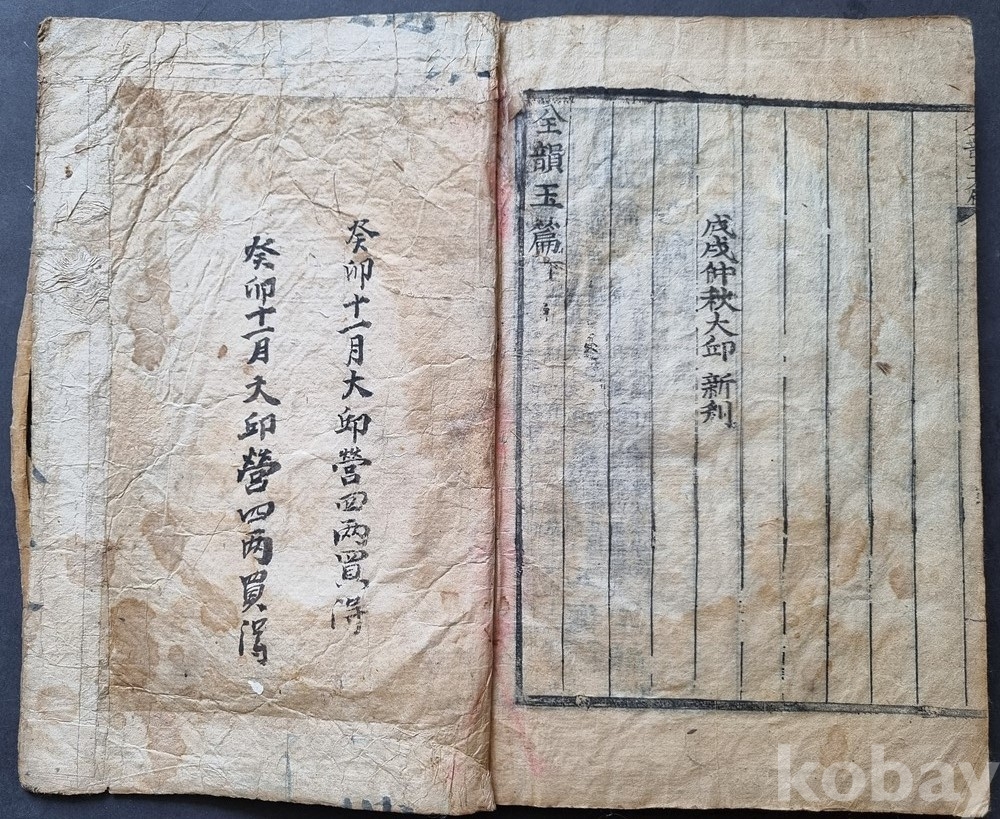 戊戌仲秋大邱新刊
全韻玉篇下
癸卯十一月大邱營四两買得
癸卯十一月大邱營四两買得
kobay